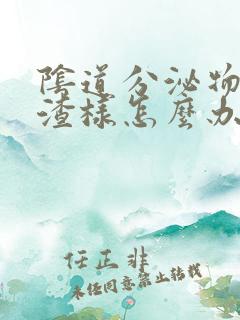 陰道分泌物
渣樣怎麼办
任正非
未经同意禁止转载